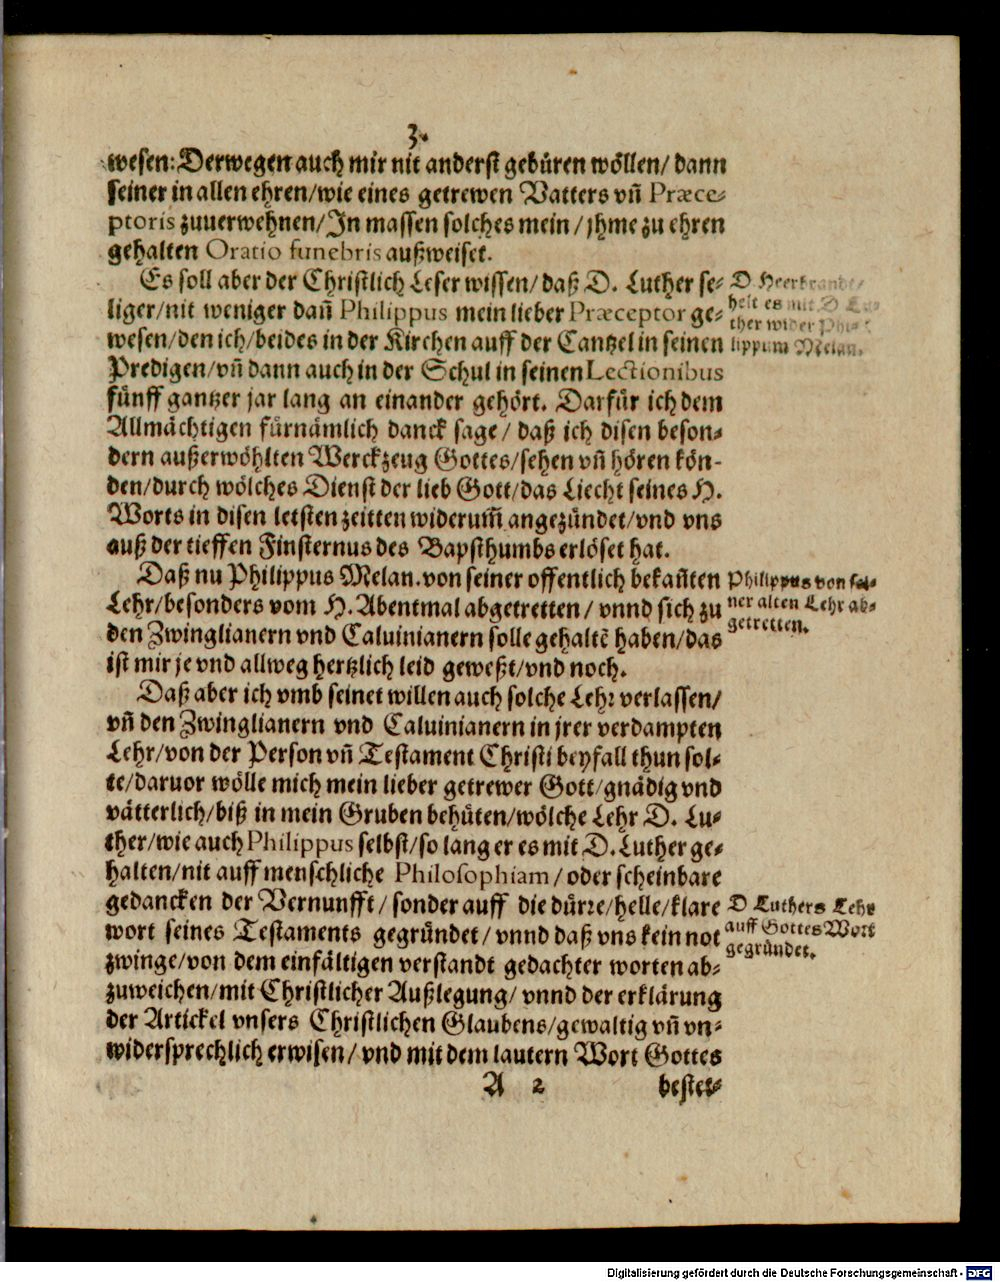 3.
wesen: Derwegen auch mir nit anderst gebüren wöllen/ dann
seiner in allen ehren/wie eines getrewen Vatters vn̄ Præce-
ptoris zuuerwehnen/ In massen solches mein / jhme zu ehren
gehalten Oratio funebris außweiset.
Es soll aber der Christlich Leser wissen/ daß D. Luther se-
liger/nit weniger dan̄ Philippus mein lieber Præceptor ge-
wesen/den ich/beides in der Kirchen auff der Cantzel in seinen
Predigen/vn̄ dann auch in der Schul in seinen Lectionibus
fünff gantzer jar lang an einander gehört. Darfür ich dem
Allmächtigen fürnämlich danck sage / daß ich disen beson-
dern außerwöhlten Werckzeug Gottes/sehen vn̄ hören kön-
den/durch wölches Dienst der lieb Gott/das Liecht seines H.
Worts in disen letsten zeitten widerum̄ angezündet/vnd vns
auß der tieffen Finsternus des Bapsthumbs erlöset hat.
D Heerbrandt
helt es mit D Lu-
ther wider Phi-
lippum Melan.
Daß nu Philippus Melan. von seiner offentlich bekan̄ten
Lehr/besonders vom H. Abentmal abgetretten/ vnnd sich zu
den Zwinglianern vnd Caluinianern solle gehaltē haben/das
ist mir je vnd allweg hertzlich leid geweßt/vnd noch.
Philippus von sei-
ner alten Lehr ab-
getretten.
Daß aber ich vmb seinet willen auch solche Lehr verlassen/
vn̄ den Zwinglianern vnd Caluinianern in jrer verdampten
Lehr/von der Person vn̄ Testament Christi beyfall thun sol-
te/daruor wölle mich mein lieber getrewer Gott/gnädig vnd
vätterlich/biß in mein Gruben behüten/wölche Lehr D. Lu-
ther/wie auch Philippus selbst/so lang er es mit D. Luther ge-
halten/nit auff menschliche Philosophiam / oder scheinbare
gedancken der Vernunfft/ sonder auff die dürre/helle/klare
wort seines Testaments gegründet/ vnnd daß vns kein not
zwinge/von dem einfältigen verstandt gedachter worten ab-
zuweichen/mit Christlicher Außlegung/ vnnd der erklärung
der Artickel vnsers Christlichen Glaubens/gewaltig vn̄ vn-
widersprechlich erwisen/ vnd mit dem lautern Wort Gottes
D Luthers Lehr
auff Gottes Wort
gegründet.
A 2 bestet-
Digitalisierung gefördert durch die Deutsche Forschungsgemeinschaft - DFG